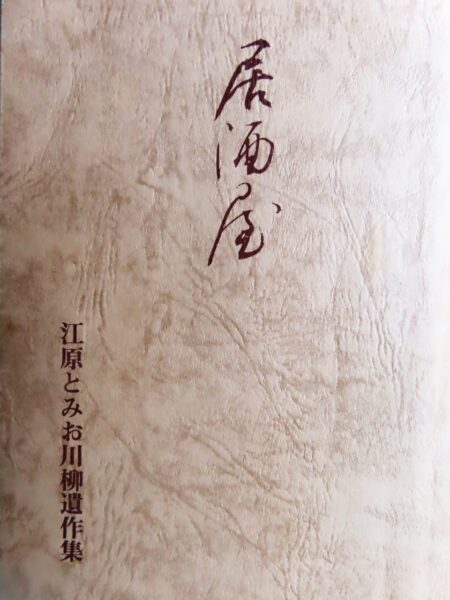 居酒屋
江原とみお川柳遺作集